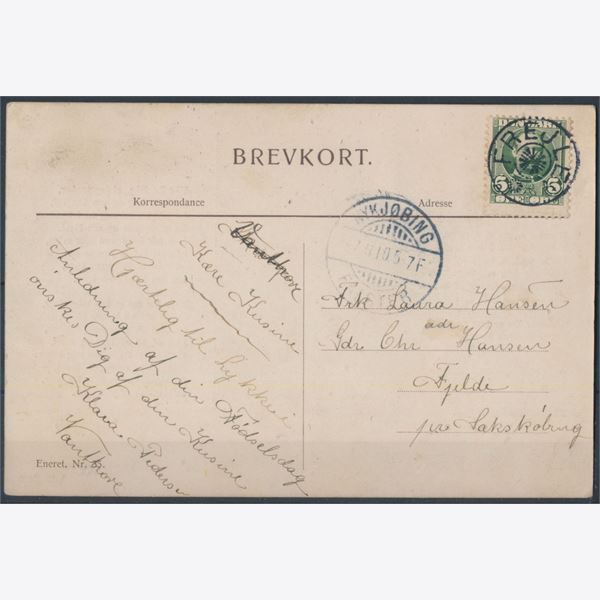 BREVKORT.
Korrespondance
Adresse
DANMARK
5 5
FREJLEV
KJØBING
7F
Vantore
Kære Kusine
Hjærtelig til Lykke i
Anledning af din Fødselsdag
önskes Dig af din Kusine
Klara Pedersen
Vantore
Frk Laura Hansen
adr
Gdr Chr Hansen
Fjelde
pr Sakskøbing
Eneret. Nr.